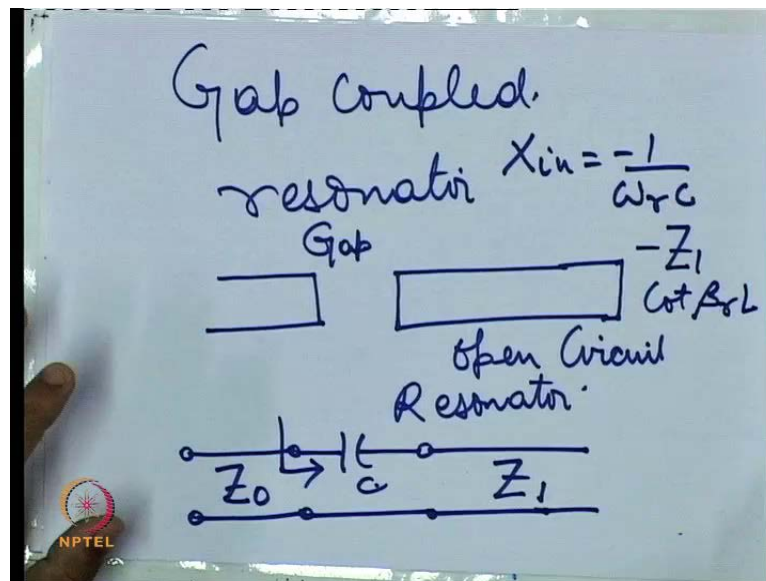 Gap coupled.
resonator Xin = -1/ωrC
Gap
-Z1
Cot βrL
open Circuit
Resonator.
Z0 C Z1
NPTEL